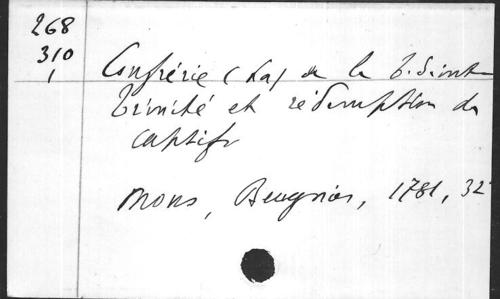 268
310
Confrérie (La) de la t. Sainte
Trinité et rédemption des
captifs
Mons, Beugnies, 1781, 32